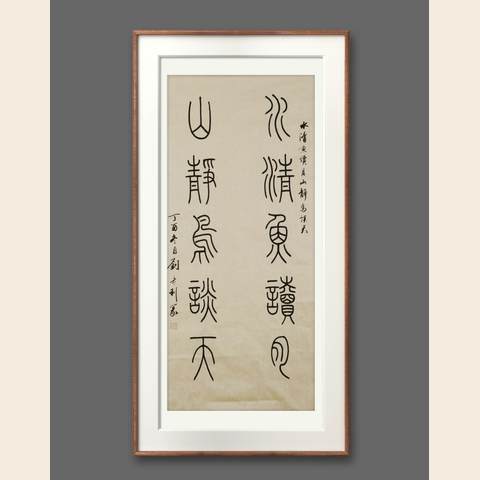 水清魚讀月山靜鳥談天
水清魚讀月
山靜鳥談天
丁酉冬月劉利篆